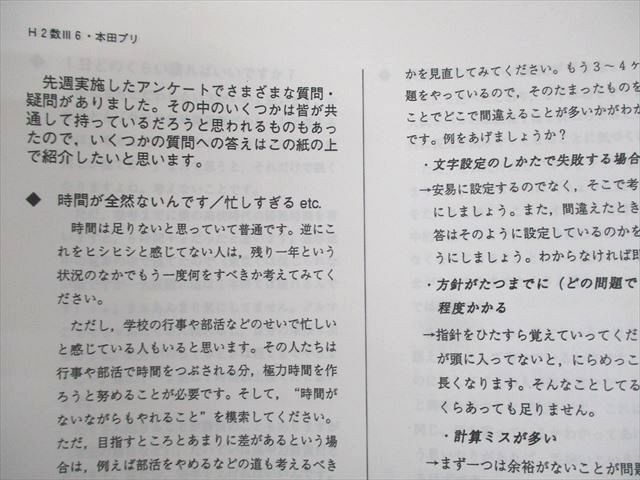 H2数Ⅲ6・本田プリ
先週実施したアンケートでさまざまな質問・
疑問がありました。その中のいくつかは皆が共
通して持っているだろうと思われるものもあっ
たので，いくつかの質問への答えはこの紙の上
で紹介したいと思います。
◆ 時間が全然ないんです／忙しすぎる etc.
時間は足りないと思っていて普通です。逆にこ
れをヒシヒシと感じてない人は，残り一年という
状況のなかでもう一度何をすべきか考えてみてく
ださい。
ただし，学校の行事や部活などのせいで忙しい
と感じている人もいると思います。その人たちは
行事や部活で時間をつぶされる分，極力時間を作
ろうと努めることが必要です。そして，“時間が
ないながらもやれること”を模索してください。
ただ，目指すところとあまりに差があるという場
合は，例えば部活をやめるなどの道も考えるべき
かを見直してみてください。もう3～4ケ
題をやっているので，そのたまったものを
ことでどこで間違えることが多いかがわか
です。例をあげましょうか？
・文字設定のしかたで失敗する場合
→安易に設定するのでなく，そこで考
にしましょう。また，間違えたとき
答はそのように設定しているのかを
うにしましょう。わからなければ即
・方針がたつまでに（どの問題で
程度かかる
→指針をひたすら覚えていってくだ
が頭に入ってないと，にらめっこ
長くなります。そんなことしてる
くらあっても足りません。
・計算ミスが多い
→まず一つは余裕がないことが問題